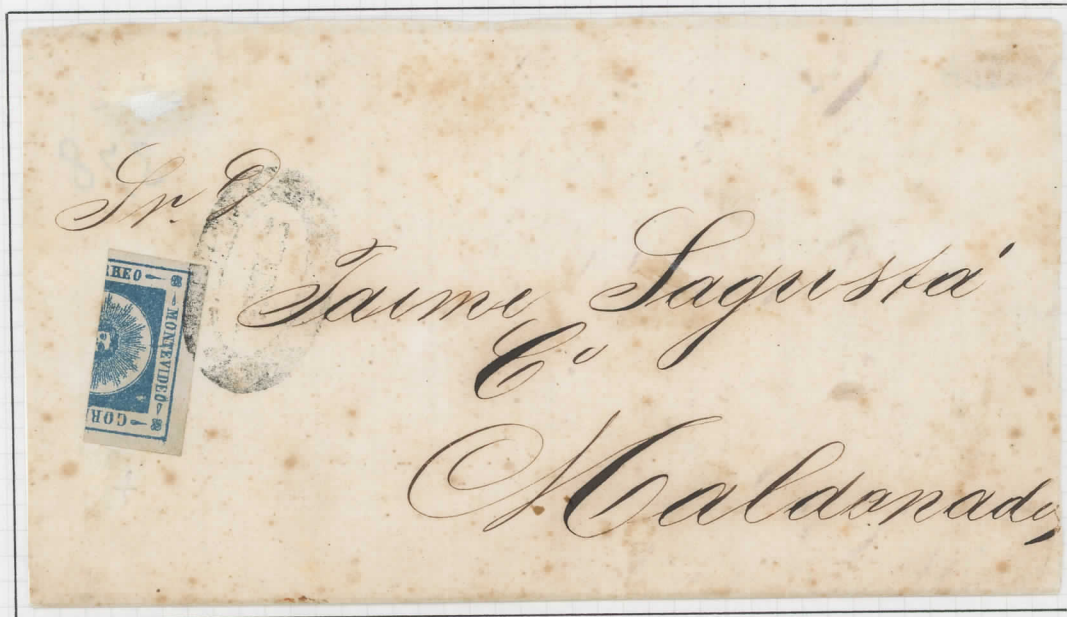 Sr. D
Jaime Sagustá
Co
Maldonado
RREO
MONTEVIDEO
COR